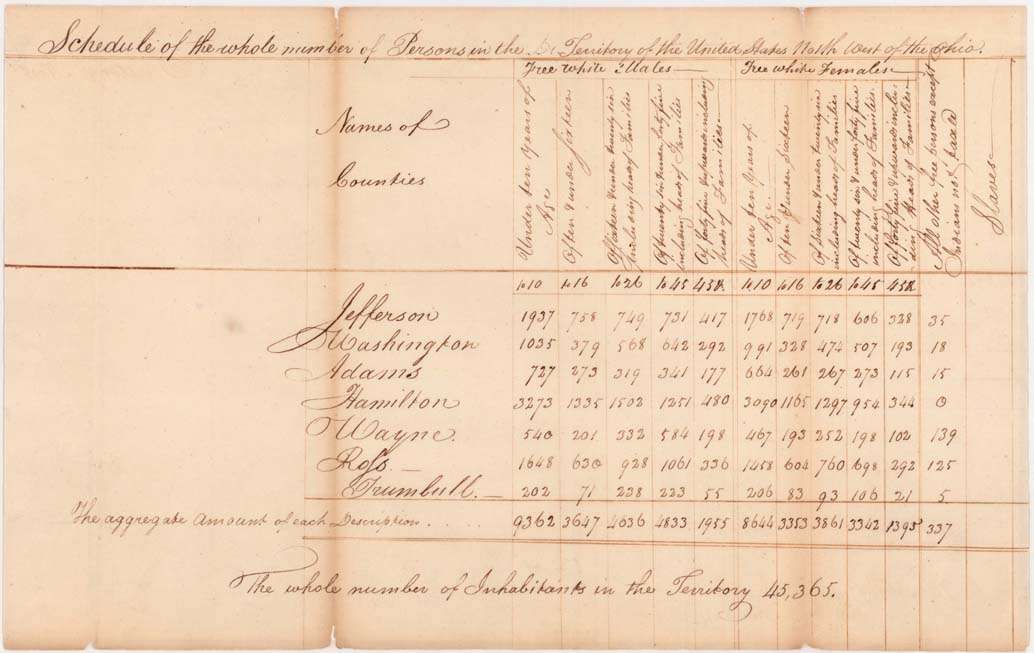 Schedule of the whole number of Persons in the Territory of the United States North West of the Ohio.
Free white Males — Free white Females —
Names of
Counties
Under ten Years of Age
Of ten & under sixteen
Of sixteen & under twenty six including heads of Families
Of twenty six & under forty five including heads of Families
Of forty five & upwards including heads of Families —
Under ten Years of Age
Of ten & under Sixteen
Of sixteen & under twenty six including heads of Families
Of twenty six & under forty five including heads of Families
Of forty five & upwards including heads of Families
All other free persons except Indians not taxed
Slaves —
to 10 to 16 to 26 to 45 45 & to 10 to 16 to 26 to 45 45 &
Jefferson 1937 758 749 731 417 1768 719 718 606 328 35
Washington 1035 379 568 642 292 991 328 474 507 193 18
Adams 727 273 319 341 177 664 261 267 273 115 15
Hamilton 3273 1335 1502 1251 480 3090 1165 1297 954 344 0
Wayne. 540 201 332 584 198 467 193 252 198 102 139
Ross — 1648 630 928 1061 336 1458 604 760 698 292 125
Trumbull. — 202 71 238 223 55 206 83 93 106 21 5
The aggregate amount of each Description . . . . . 9362 3647 4636 4833 1955 8644 3353 3861 3342 1395 337
The whole number of Inhabitants in the Territory 45,365.